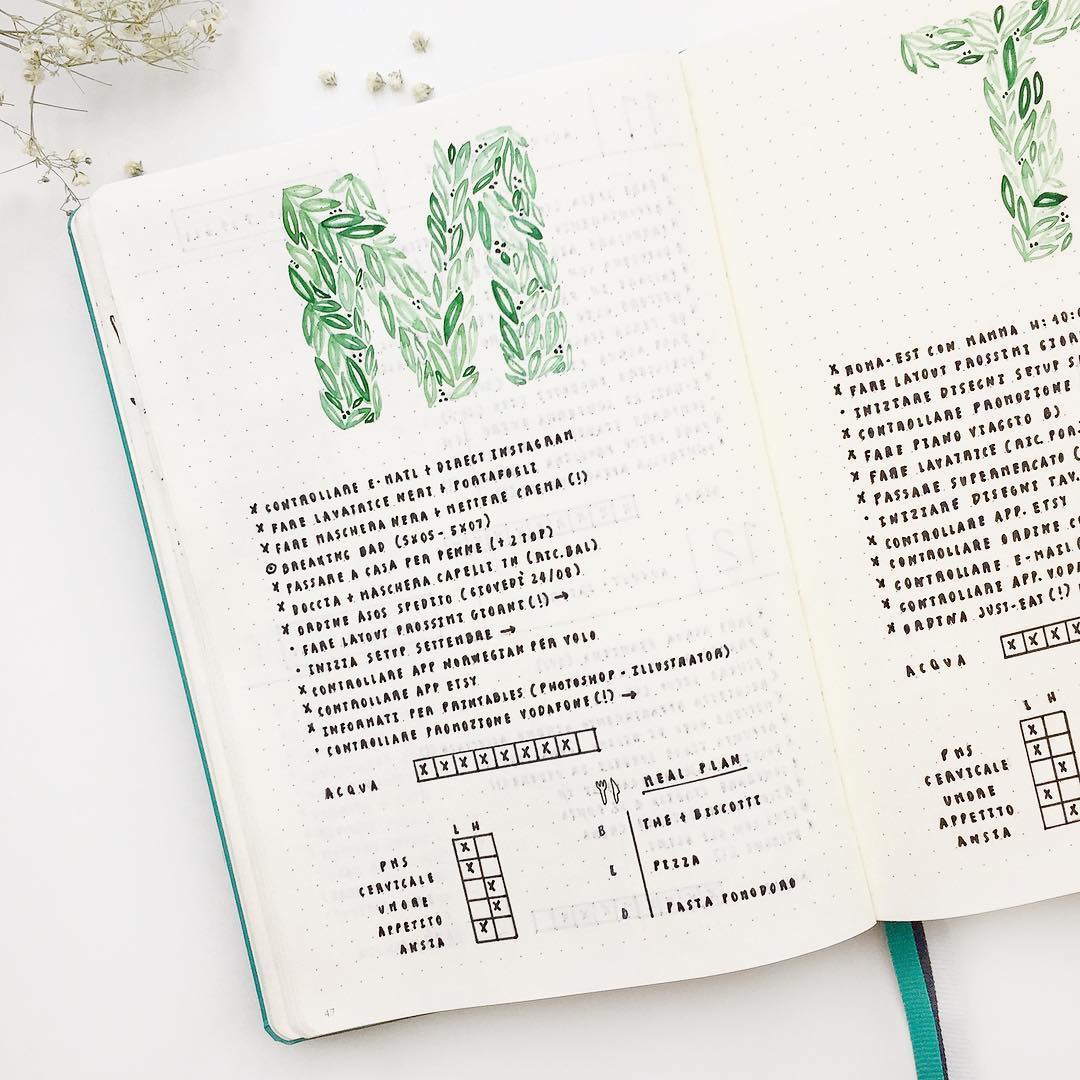 M
x CONTROLLARE E-MAIL + DIRECT INSTAGRAM
x FARE LAVATRICE NERI + PORTAFOGLI
x FARE MASCHERA NERA + METTERE CREMA (!)
BREAKING BAD (5X05 - 5X07)
x PASSARE A CASA PER PENNE (+ 2 TOP)
x DOCCIA + MASCHERA CAPELLI TN (RIC. BAL)
x ORDINE ASOS SPEDITO (GIOVEDÌ 24/08)
• FARE LAYOUT PROSSIMI GIORNI (!) →
• INIZIA SETUP SETTEMBRE →
x CONTROLLARE APP NORWEGIAN PER VOLO
x CONTROLLARE APP. ETSY
x INFORMATI PER PRINTABLES (PHOTOSHOP - ILLUSTRATOR)
• CONTROLLARE PROMOZIONE VODAFONE (!) →
ACQUA x x x x x x x x
L H
PMS x
CERVICALE x
UMORE x
APPETITO x
ANSIA x
MEAL PLAN
B THE + BISCOTTI
L PIZZA
D PASTA POMODORO
47
T
x ROMA-EST CON MAMMA H: 10:
x FARE LAYOUT PROSSIMI
• INIZIARE DISEGNI SETUP
x CONTROLLARE PROMOZIONE
x FARE PIANO VIAGGIO B)
x FARE LAVATRICE (RIC.
x PASSARE SUPERMERCATO (
• INIZIARE DISEGNI TAV.
x CONTROLLARE APP. ETSY
x CONTROLLARE ORDINE
x CONTROLLARE E-MAIL (
x CONTROLLARE APP.
x ORDINA JUST-EAT (!)
ACQUA x x x x
L H
PMS x
CERVICALE x
UMORE x
APPETITO x
ANSIA x